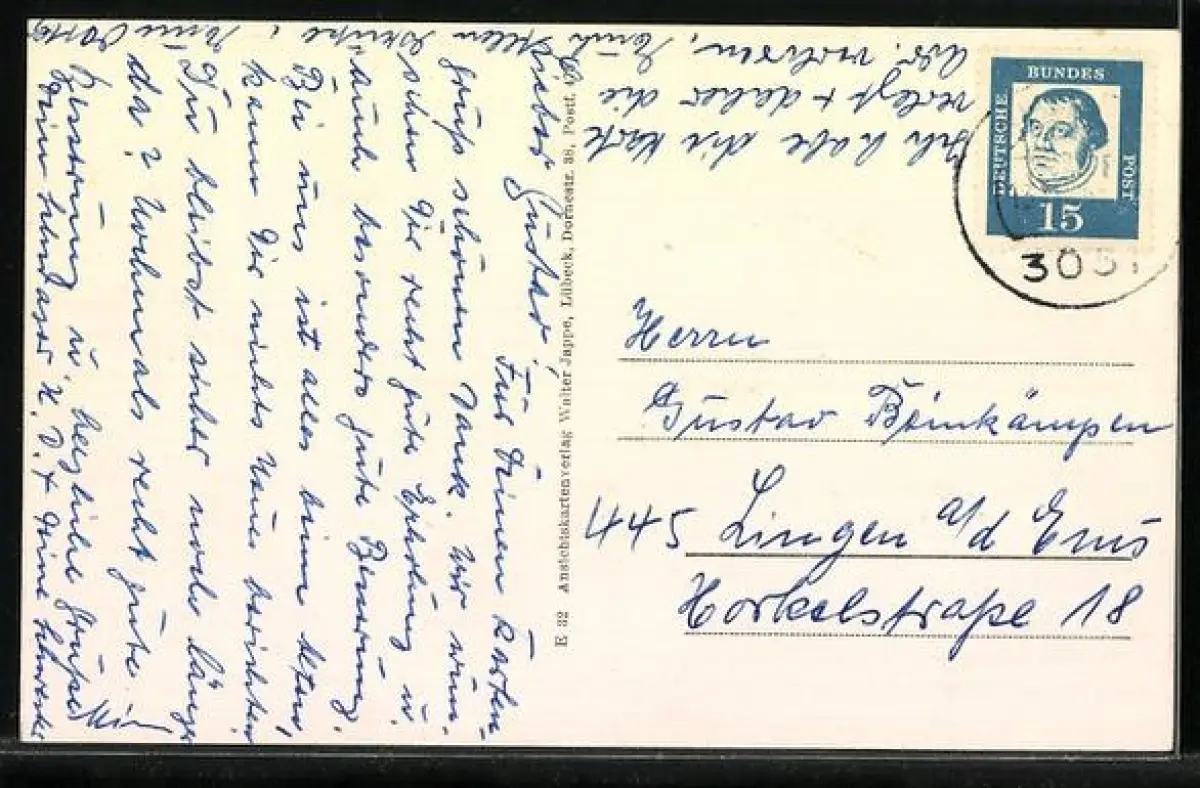 Lieber Gustav! Für Deinen Karten-
gruß schönen Dank. Wir wün-
schen Dir recht gute Erholung u.
auch besonders gute Besserung.
Bei uns ist alles beim alten,
kann Dir nichts Neues berichten
Du bleibst sicher noch länger
da? Nochmals recht gute
Besserung u. herzliche Grüße
Dein Schwager H. D. + Deine Schwester
Ich habe die Karte
verlegt + daher die
Adr. verloren,
E 32 Ansichtskartenverlag Walter Jappe, Lübeck, Dornestr. 38, Postf.
DEUTSCHE
BUNDES
POST
Luther
15
305
Herrn
Gustav Beinkämpen
445 Lingen a/d Ems
Horkelstraße 18